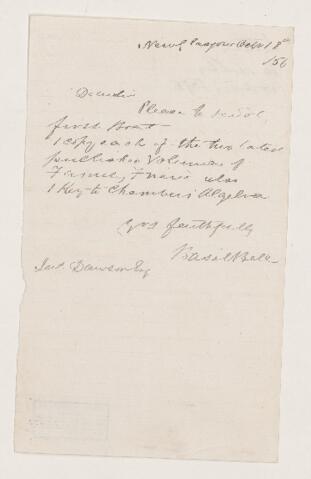 New Glasgow Oct 18th
/56
Dear Sir
Please to send
first Boat
1 copy each of the two latest
published Volumes of
also
1 Key to Chambers Algebra
Yours faithfully
Basil Bell
Jas. Dawson Esq